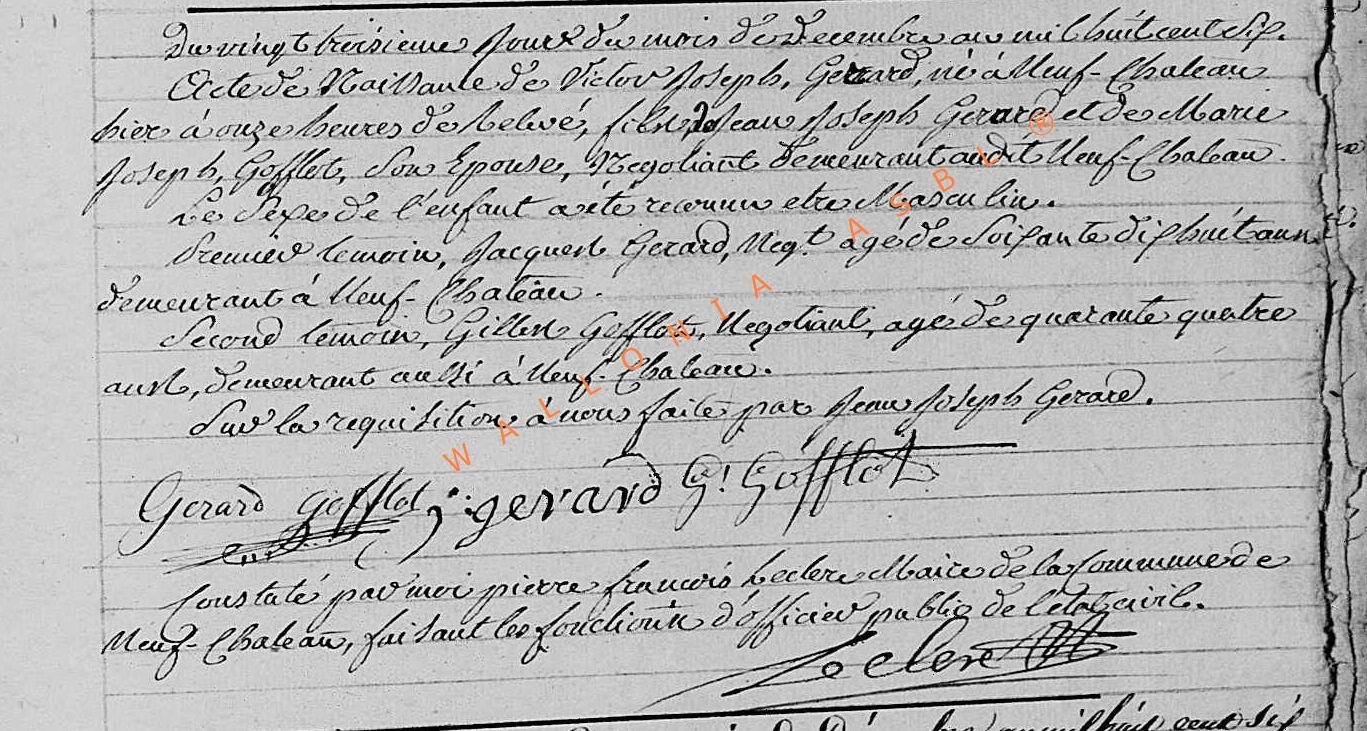 Du vingt troisieme Jour du mois de Decembre an mil huit cent dix.
Acte de Naissance de Victor Joseph, Gerard, né à Neuf-Chateau
hier à onze heures de relevé, fils de Jean Joseph Gerard et de Marie
Joseph, Gofflot, Son Epouse, Negotiant demeurant audit Neuf-Chateau.
Le Sexe de l'enfant a été reconnu etre Masculin.
Premier temoin, Jacques Gerard, Negt. agé de Soixante dix huit ans
demeurant à Neuf-Chateau.
Second temoin, Gilles Gofflot, Negotiant, agé de quarante quatre
ans, demeurant aussi à Neuf-Chateau.
Sur la requisition à nous faite par Jean Joseph Gerard.
Gerard gofflot j: gerard G! Gofflot
Constaté par moi pierre francois Leclere Maire de la Commune de
Neuf-Chateau, faisant les fonctions d'officier public de l'état civil.
Leclere
mil huit cent dix
WALLONIA ASBL ®